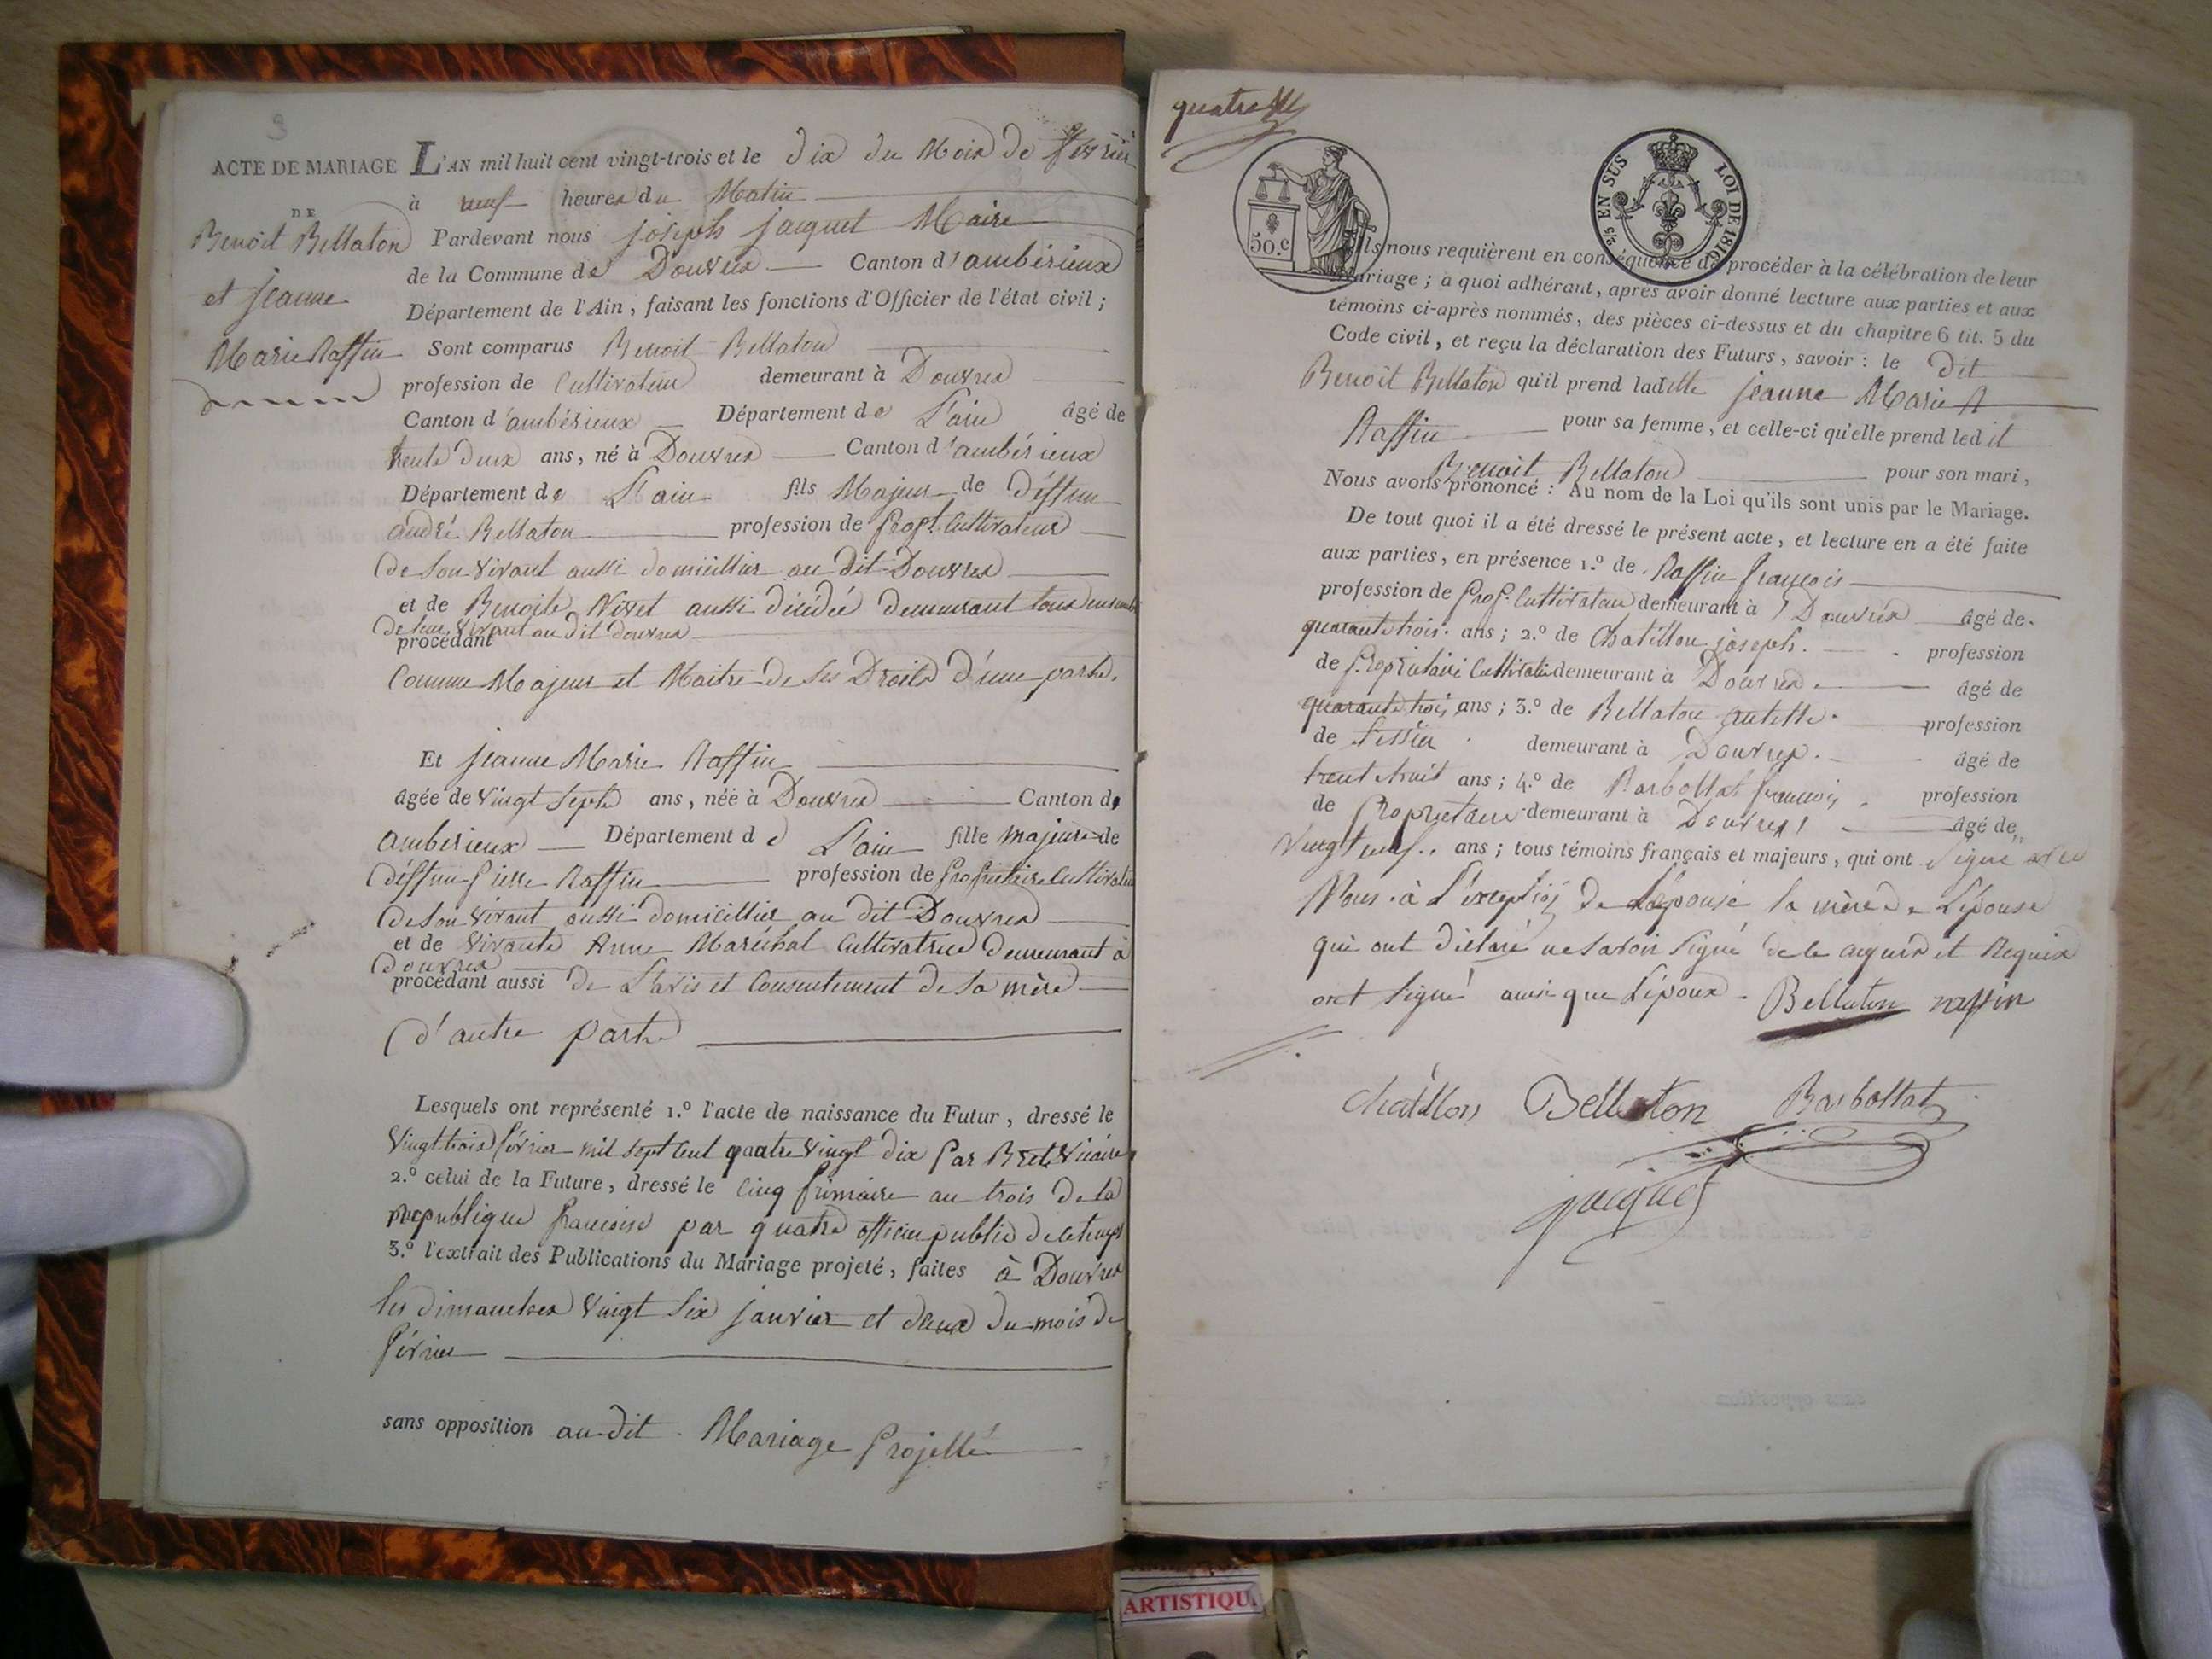 3
ACTE DE MARIAGE
DE
Benoit Bellaton
et jeanne
Marie Raffin
L'AN mil huit cent vingt-trois et le dix du Mois de février
à neuf heures du Matin
Pardevant nous joseph jacquet Maire
de la Commune de Douvres Canton d'ambérieux
Département de l'Ain, faisant les fonctions d'Officier de l'état civil;
Sont comparus Benoit Bellaton
profession de Cultivateur demeurant à Douvres
Canton d'ambérieux Département de L'ain âgé de
trente deux ans, né à Douvres Canton d'ambérieux
Département de L'ain fils Majeur de déffun
andré Bellaton profession de Propt. Cultivateur
de Son Vivant aussi domicillier au dit Douvres
et de Benoite Nivet aussi décédée demeurant tous ensemble
de leur Vivant au dit douvres
procédant
Comme Majeur et Maitre de ses Droits d'une parte.
Et jeanne Marie Raffin
âgée de Vingt Septe ans, née à Douvres Canton de
amberieux Département de L'ain fille majeure de
déffun pierre Raffin profession de Propriétaire Cultivateur
de Son Vivant aussi domicillier au dit Douvres
et de Vivante Anne Maréchal Cultivatrice demeurant à
douvres
procédant aussi de L'avis et Consentement de Sa mère
d'autre parte
Lesquels ont représenté 1.º l'acte de naissance du Futur, dressé le
Vingt trois février mil Sept Cent quatre Vingt dix par Bret Vicaire
2.º celui de la Future, dressé le Cinq frimaire an trois de la
republique francoise par quatre officier public de ce temps
3.º l'extrait des Publications du Mariage projeté, faites à Douvres
les dimanches Vingt Six janvier et deux du mois de
février
sans opposition au dit Mariage Projetté
quatre
50.c
2/5 EN SUS LOI DE 1816
Ils nous requièrent en conséquence de procéder à la célébration de leur
mariage; à quoi adhérant, après avoir donné lecture aux parties et aux
témoins ci-après nommés, des pièces ci-dessus et du chapitre 6 tit. 5 du
Code civil, et reçu la déclaration des Futurs, savoir: le dit
Benoit Bellaton qu'il prend ladette jeanne Marie
Raffin pour sa femme, et celle-ci qu'elle prend ledit
Benoit Bellaton pour son mari,
Nous avons prononcé: Au nom de la Loi qu'ils sont unis par le Mariage.
De tout quoi il a été dressé le présent acte, et lecture en a été faite
aux parties, en présence 1.º de Raffin françois
profession de Prop. Cultivateur demeurant à Douvres âgé de
quarante trois ans; 2.º de Chatillon joseph. profession
de Propriétaire Cultivateur demeurant à Douvres âgé de
quarante trois ans; 3.º de Bellaton antelle. profession
de tessier demeurant à Douvres. âgé de
trent et huit ans; 4.º de Barbollat françois profession
de Propriétaire demeurant à Douvres âgé de
Vingt neuf ans; tous témoins français et majeurs, qui ont signé avec
Nous à L'exeption De L'épouse la mère de L'épouse
qui ont déclaré ne Savoir Signé de ce enquis et Requis
ont Signé ainsi que L'époux. Bellaton raffin
chatillon Bellaton Barbollat
jacquet
ARTISTIQU